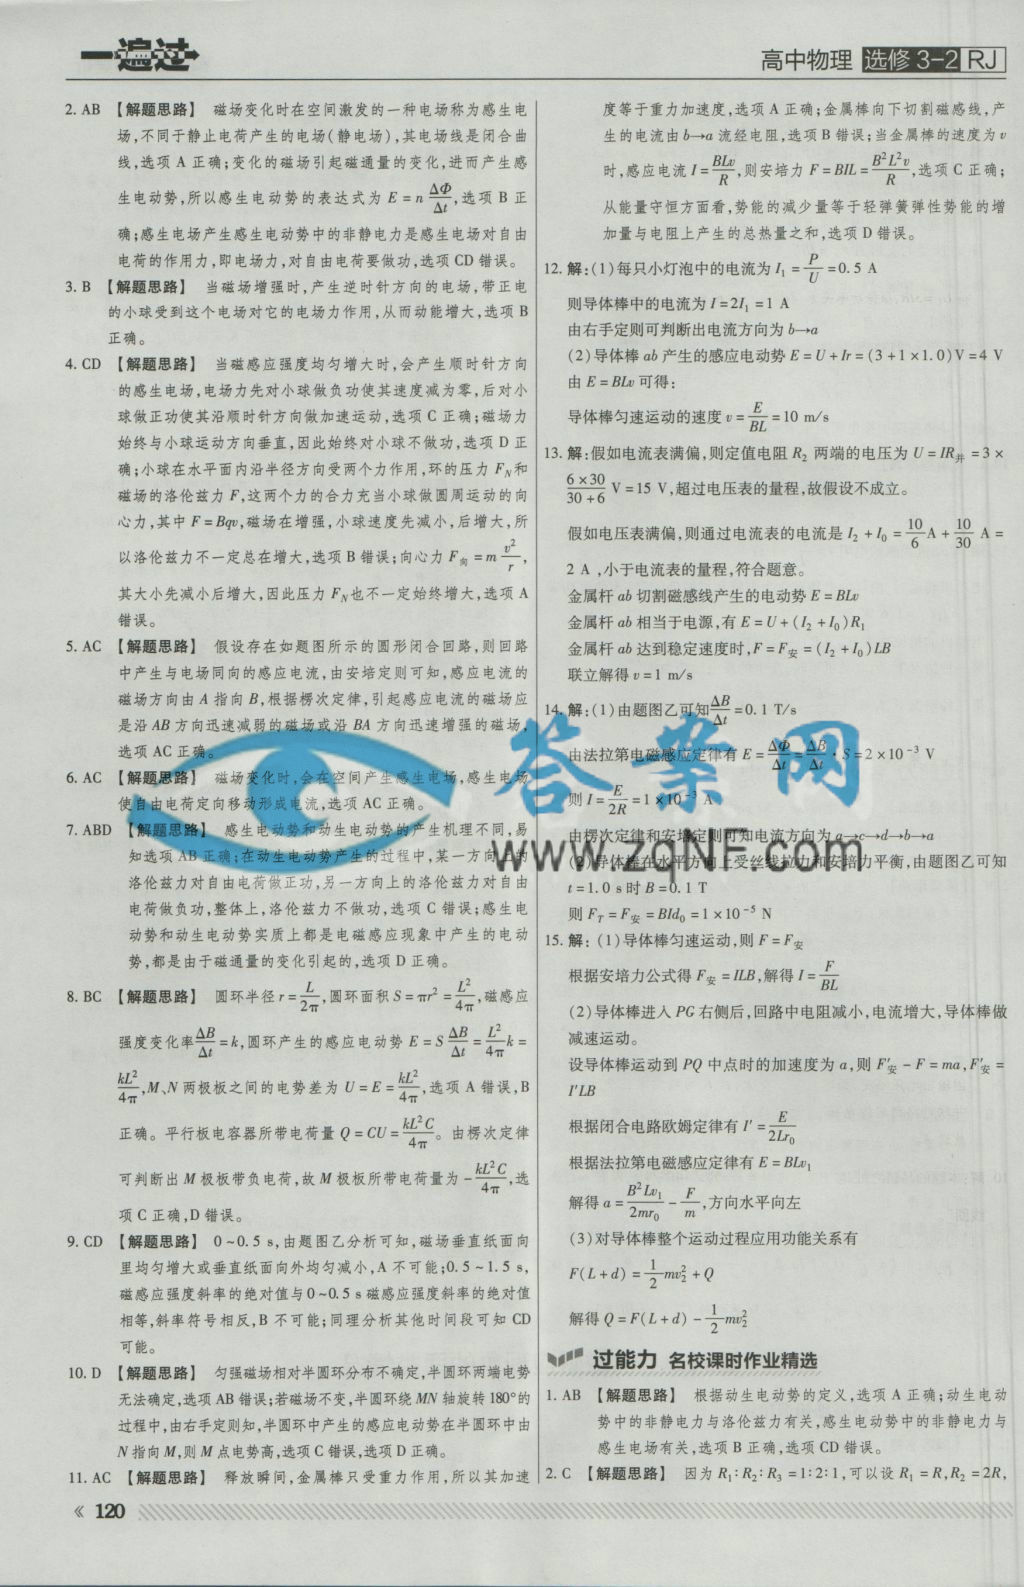 一遍过
高中物理 选修3-2 RJ
2. AB 【解题思路】 磁场变化时在空间激发的一种电场称为感生电
场,不同于静止电荷产生的电场(静电场),其电场线是闭合曲
线,选项 A 正确;变化的磁场引起磁通量的变化,进而产生感
生电动势,所以感生电动势的表达式为 E = n ΔΦ/Δt,选项 B 正
确;感生电场产生感生电动势中的非静电力是感生电场对自由
电荷的作用力,即电场力,对自由电荷要做功,选项 CD 错误。
3. B 【解题思路】 当磁场增强时,产生逆时针方向的电场,带正电
的小球受到这个电场对它的电场力作用,从而动能增大,选项 B
正确。
4. CD 【解题思路】 当磁感应强度均匀增大时,会产生顺时针方向
的感生电场,电场力先对小球做负功使其速度减为零,后对小
球做正功使其沿顺时针方向做加速运动,选项 C 正确;磁场力
始终与小球运动方向垂直,因此始终对小球不做功,选项 D 正
确;小球在水平面内沿半径方向受两个力作用,环的压力 F_N 和
磁场的洛伦兹力 F,这两个力的合力充当小球做圆周运动的向
心力,其中 F = Bqv,磁场在增强,小球速度先减小,后增大,所
以洛伦兹力不一定总在增大,选项 B 错误;向心力 F向 = m v²/r,
其大小先减小后增大,因此压力 F_N 也不一定始终增大,选项 A
错误。
5. AC 【解题思路】 假设存在如题图所示的圆形闭合回路,则回路
中产生与电场同向的感应电流,由安培定则可知,感应电流的
磁场方向由 A 指向 B,根据楞次定律,引起感应电流的磁场应
是沿 AB 方向迅速减弱的磁场或沿 BA 方向迅速增强的磁场,
选项 AC 正确。
6. AC 【解题思路】 磁场变化时,会在空间产生感生电场,感生电场
使自由电荷定向移动形成电流,选项 AC 正确。
7. ABD 【解题思路】 感生电动势和动生电动势的产生机理不同,易
知选项 AB 正确;在动生电动势产生的过程中,某一方向上的
洛伦兹力对自由电荷做正功,另一方向上的洛伦兹力对自由
电荷做负功,整体上,洛伦兹力不做功,选项 C 错误;感生电
动势和动生电动势实质上都是电磁感应现象中产生的电动
势,都是由于磁通量的变化引起的,选项 D 正确。
8. BC 【解题思路】 圆环半径 r = L/2π,圆环面积 S = πr² = L²/4π,磁感应
强度变化率 ΔB/Δt = k,圆环产生的感应电动势 E = S ΔB/Δt = L²/4π k =
kL²/4π,M、N 两极板之间的电势差为 U = E = kL²/4π,选项 A 错误,B
正确。平行板电容器所带电荷量 Q = CU = kL²C/4π。由楞次定律
可判断出 M 极板带负电荷,故 M 极板所带电荷量为 - kL²C/4π,选
项 C 正确,D 错误。
9. CD 【解题思路】 0~0.5 s,由题图乙分析可知,磁场垂直纸面向
里均匀增大或垂直纸面向外均匀减小,A 不可能;0.5~1.5 s,
磁感应强度斜率的绝对值与 0~0.5 s 磁感应强度斜率的绝对值
相等,斜率符号相反,B 不可能;同理分析其他时间段可知 CD
可能。
10. D 【解题思路】 匀强磁场相对半圆环分布不确定,半圆环两端电势
无法确定,选项 AB 错误;若磁场不变,半圆环绕 MN 轴旋转 180°的
过程中,由右手定则知,半圆环中产生的感应电动势在半圆环中由
N 指向 M,则 M 点电势高,选项 C 错误,选项 D 正确。
11. AC 【解题思路】 释放瞬间,金属棒只受重力作用,所以其加速
度等于重力加速度,选项 A 正确;金属棒向下切割磁感线,产
生的电流由 b→a 流经电阻,选项 B 错误;当金属棒的速度为 v
时,感应电流 I = BLv/R,则安培力 F = BIL = B²L²v/R,选项 C 正确;
从能量守恒方面看,势能的减少量等于轻弹簧弹性势能的增
加量与电阻上产生的总热量之和,选项 D 错误。
12. 解:(1)每只小灯泡中的电流为 I₁ = P/U = 0.5 A
则导体棒中的电流为 I = 2I₁ = 1 A
由右手定则可判断出电流方向为 b→a
(2)导体棒 ab 产生的感应电动势 E = U + Ir = (3 + 1 × 1.0) V = 4 V
由 E = BLv 可得:
导体棒匀速运动的速度 v = E/BL = 10 m/s
13. 解:假如电流表满偏,则定值电阻 R₂ 两端的电压为 U = IR并 = 3 ×
6×30/30+6 V = 15 V,超过电压表的量程,故假设不成立。
假如电压表满偏,则通过电流表的电流是 I₂ + I₀ = 10/6 A + 10/30 A =
2 A,小于电流表的量程,符合题意。
金属杆 ab 切割磁感线产生的电动势 E = BLv
金属杆 ab 相当于电源,有 E = U + (I₂ + I₀)R₁
金属杆 ab 达到稳定速度时,F = F安 = (I₂ + I₀)LB
联立解得 v = 1 m/s
14. 解:(1)由题图乙可知 ΔB/Δt = 0.1 T/s
由法拉第电磁感应定律有 E = ΔΦ/Δt = ΔB/Δt · S = 2 × 10⁻³ V
则 I = E/2R = 1 × 10⁻³ A
由楞次定律和安培定则可知电流方向为 a→c→d→b→a
(2)导体棒在水平方向上受丝线拉力和安培力平衡,由题图乙可知
t = 1.0 s 时 B = 0.1 T
则 F_T = F安 = BId₀ = 1 × 10⁻⁵ N
15. 解:(1)导体棒匀速运动,则 F = F安
根据安培力公式得 F安 = ILB,解得 I = F/BL
(2)导体棒进入 PG 右侧后,回路中电阻减小,电流增大,导体棒做
减速运动。
设导体棒运动到 PQ 中点时的加速度为 a,则 F′安 - F = ma,F′安 =
I′LB
根据闭合电路欧姆定律有 I′ = E/2Lr₀
根据法拉第电磁感应定律有 E = BLv₁
解得 a = B²Lv₁/2mr₀ - F/m,方向水平向左
(3)对导体棒整个运动过程应用功能关系有
F(L + d) = 1/2 mv₂² + Q
解得 Q = F(L + d) - 1/2 mv₂²
过能力 名校课时作业精选
1. AB 【解题思路】 根据动生电动势的定义,选项 A 正确;动生电动
势中的非静电力与洛伦兹力有关,感生电动势中的非静电力与
感生电场有关,选项 B 正确,选项 CD 错误。
2. C 【解题思路】 因为 R₁∶R₂∶R₃ = 1∶2∶1,可以设 R₁ = R,R₂ = 2R,
《 120
答案网
www.zqNF.com